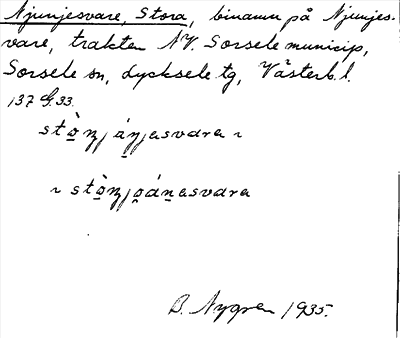 Njunjesvare, Stora, binamn på Njunjes-
vare, trakten NV. Sorsele municip,
Sorsele sn, Lycksele tg, Västerb. l.
137 G. 33.
B. Nygren 1935.